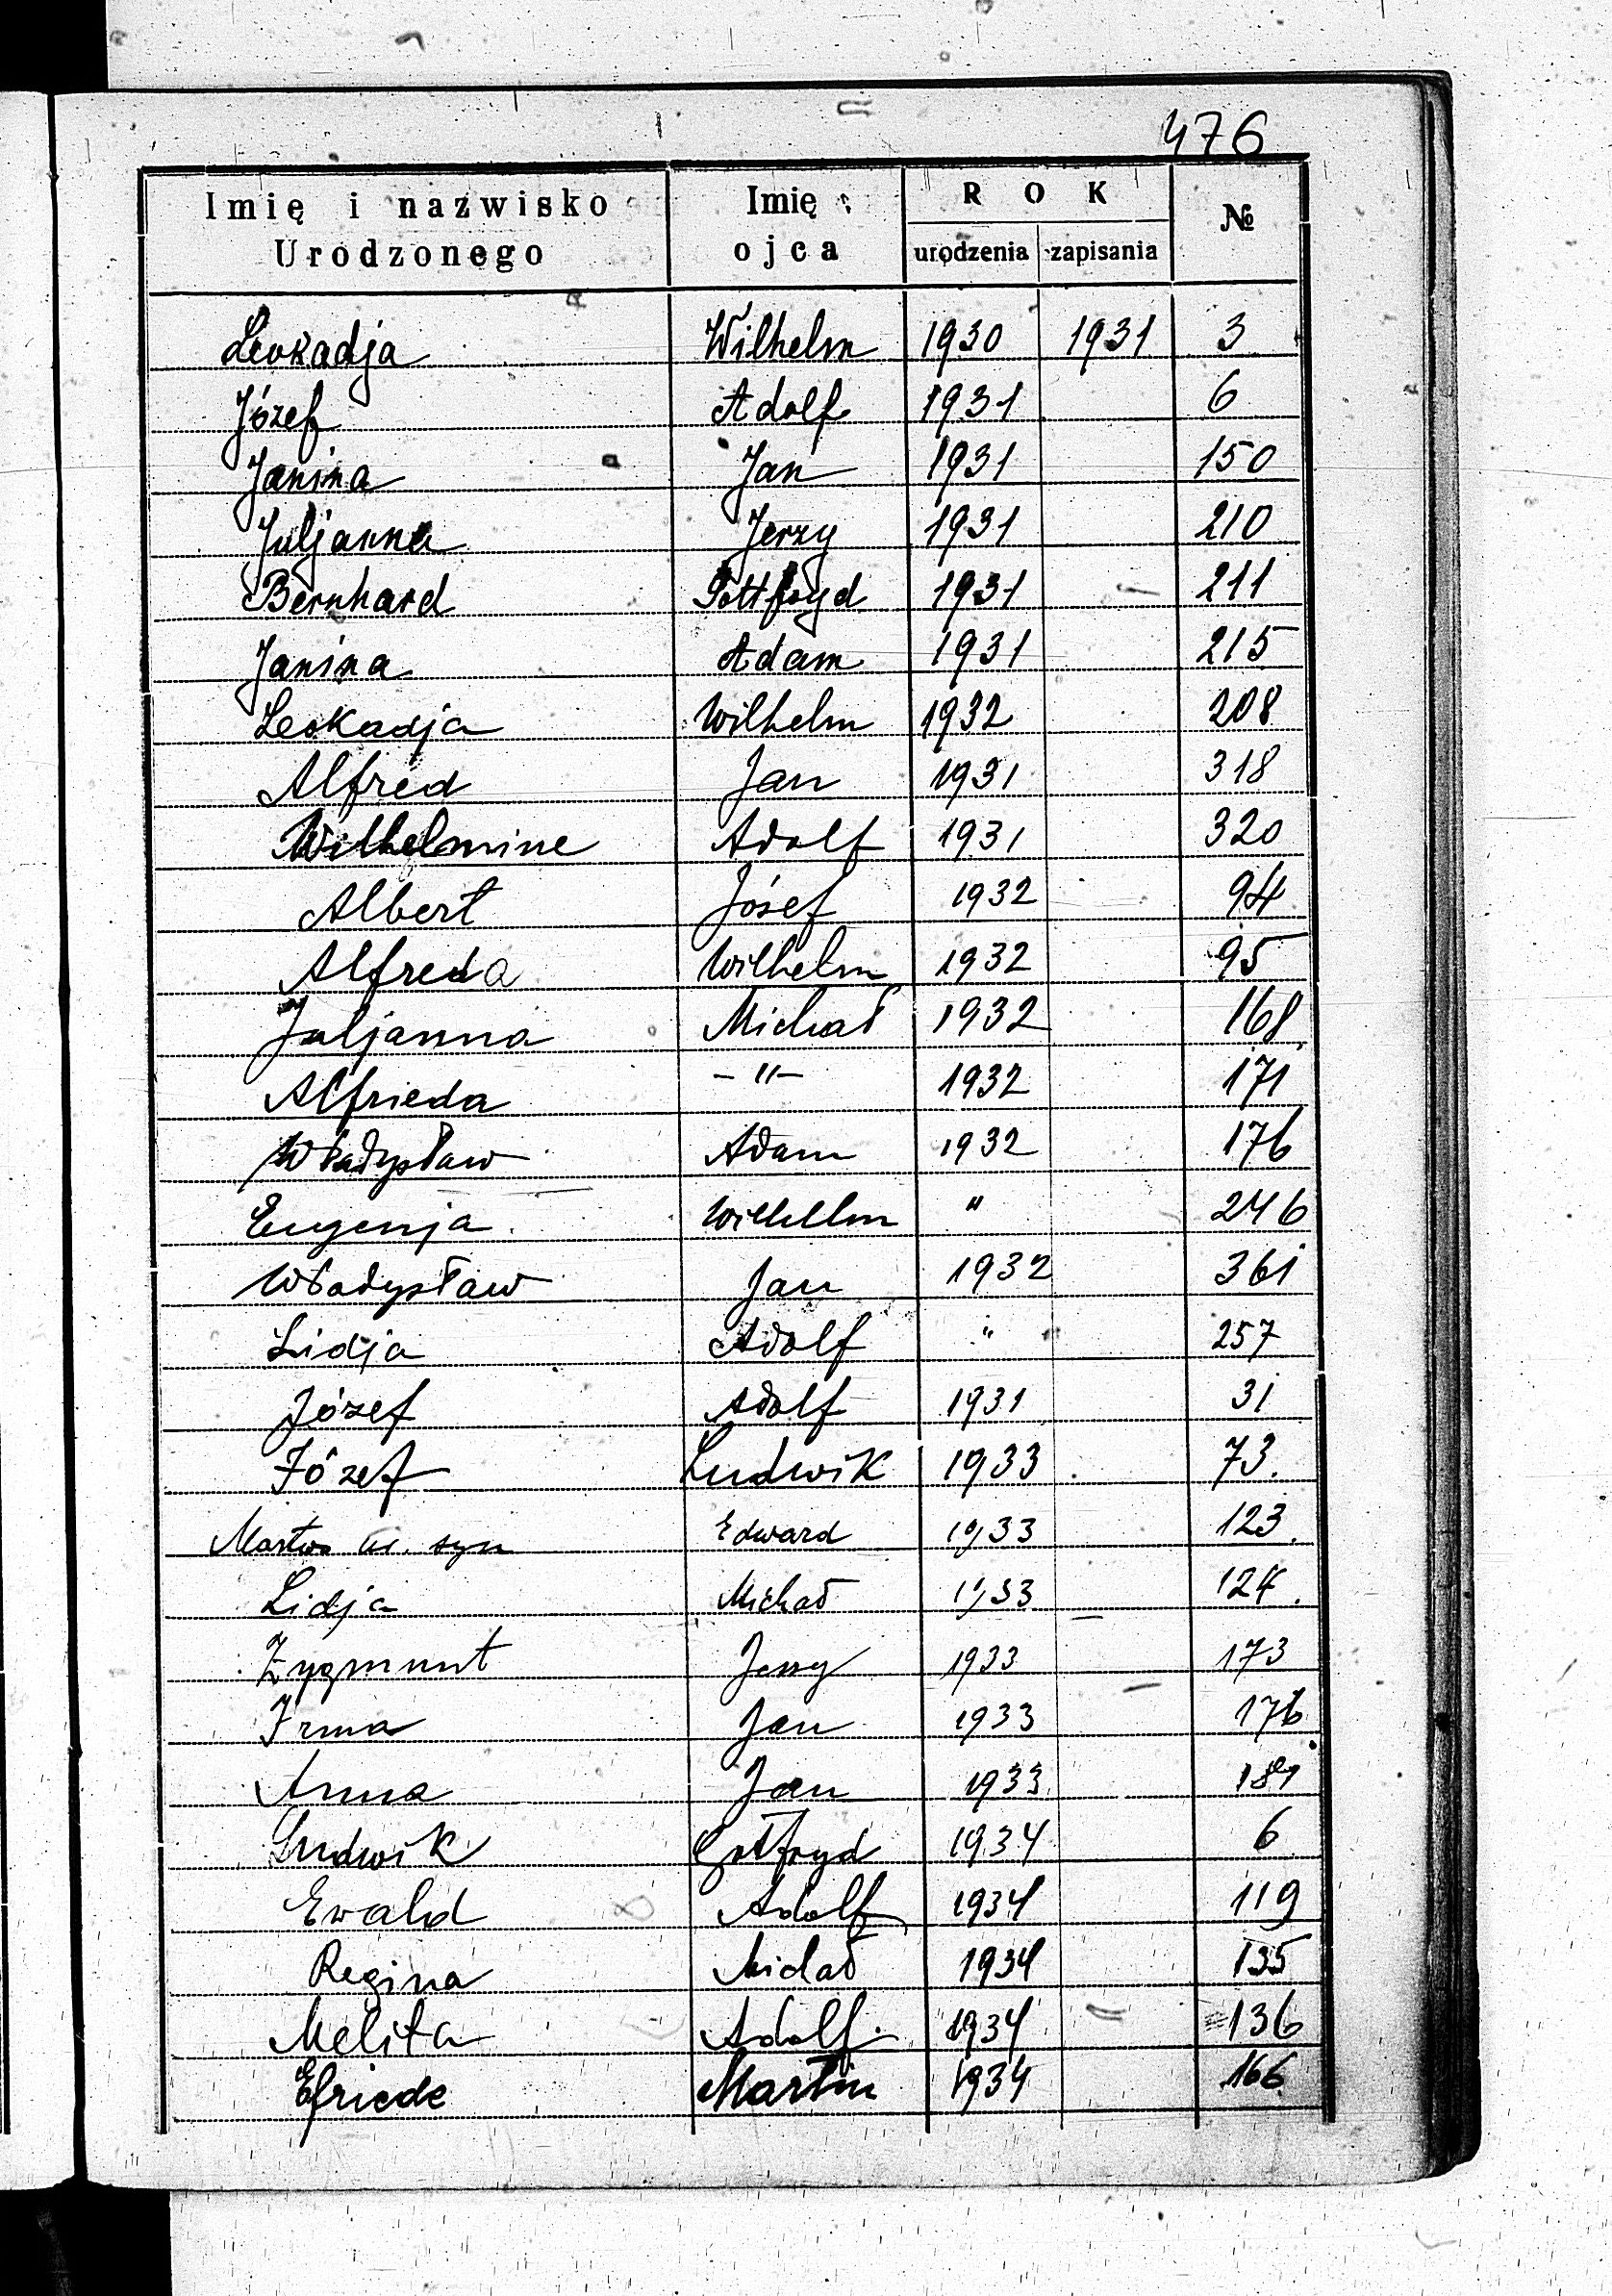 476
Imię i nazwisko Urodzonego Imię ojca ROK urodzenia zapisania №
Leokadja Wilhelm 1930 1931 3
Józef Adolf 1931 6
Janina Jan 1931 150
Juljanna Jerzy 1931 210
Bernhard Gottfryd 1931 211
Janina Adam 1931 215
Leokadja Wilhelm 1932 208
Alfred Jan 1931 318
Wilhelmine Adolf 1931 320
Albert Józef 1932 94
Alfreda Wilhelm 1932 95
Juljanna Michał 1932 168
Alfrieda -"- 1932 171
Władysław Adam 1932 176
Eugenja Wilhelm " 246
Władysław Jan 1932 361
Lidja Adolf " 257
Józef Adolf 1931 31
Józef Ludwik 1933 73.
Martwo ur. syn Edward 1933 123.
Lidja Michał 1933 124.
Zygmunt Jerzy 1933 173
Irma Jan 1933 176
Anna Jan 1933 181
Ludwik Gottfryd 1934 6
Ewald Adolf 1934 119
Regina Michał 1934 135
Melita Adolf 1934 136
Efriede Martin 1934 166